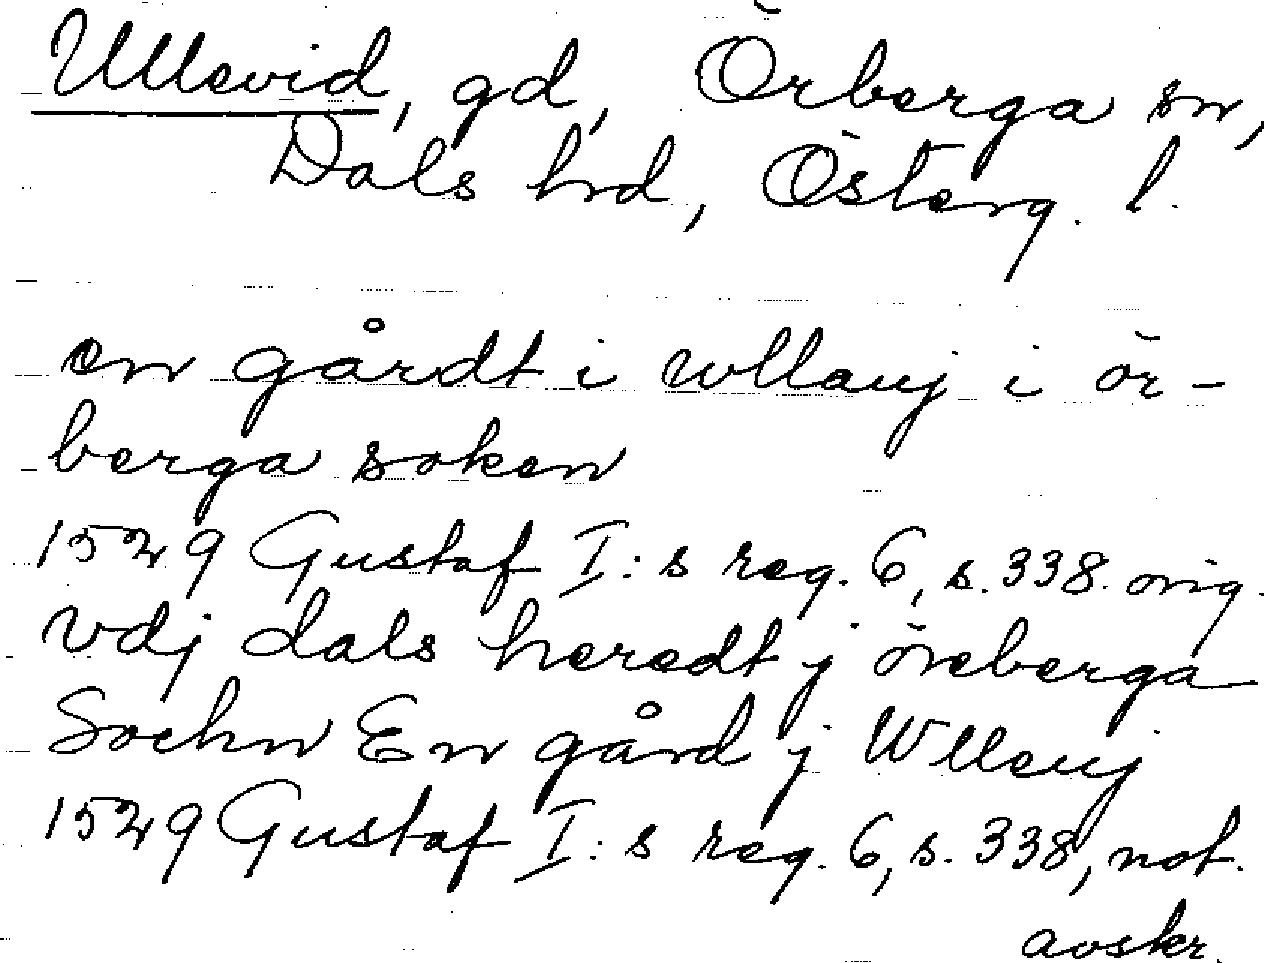 Ullevid, gd, Örberga sn,
Dals hrd, Österg. l.
en gårdt i wllauj i ör-
berga soken
1529 Gustaf I:s reg. 6, s. 338. orig.
Vdj dals heredt j öreberga
Sochn En gård j Wlleuj
1529 Gustaf I:s reg. 6, s. 338, not.
avskr.